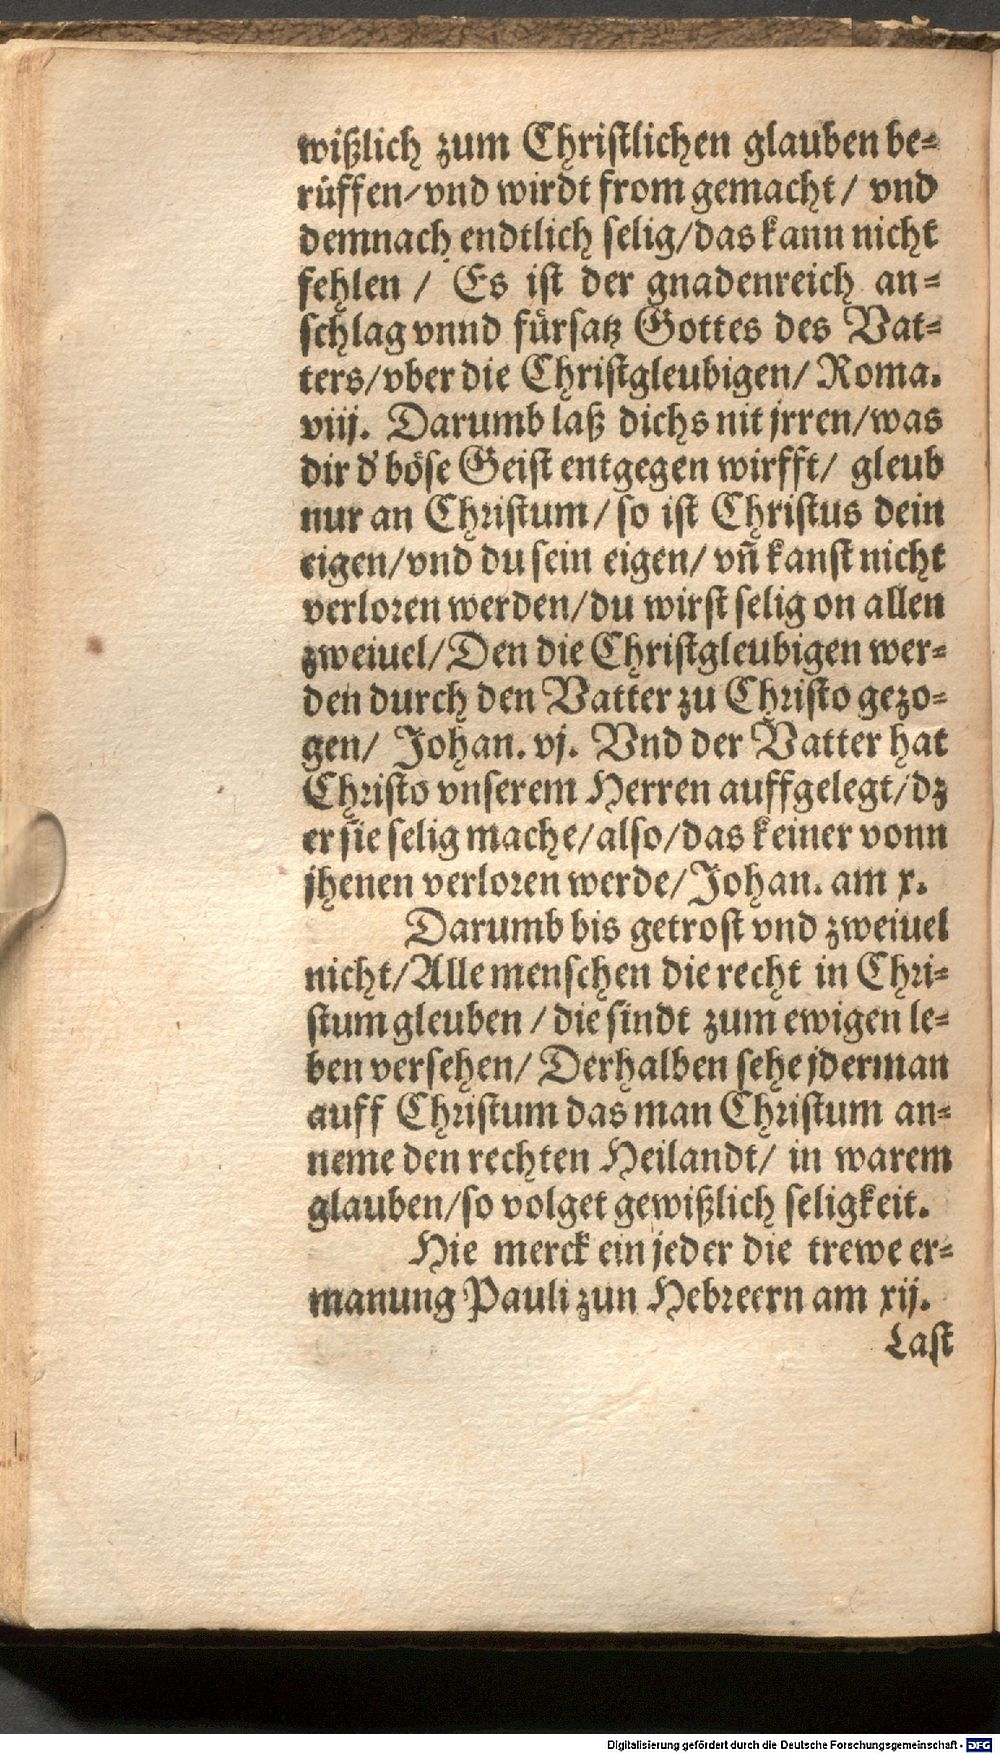 wißlich zum Christlichen glauben be⸗
rüffen/vnd wirdt from gemacht/ vnd
demnach endtlich selig/das kann nicht
fehlen / Es ist der gnadenreich an⸗
schlag vnnd fürsatz Gottes des Vat⸗
ters/vber die Christgleubigen/ Roma.
viij. Darumb laß dichs nit jrren/was
dir d' böse Geist entgegen wirfft/ gleub
nur an Christum/so ist Christus dein
eigen/vnd du sein eigen/ vñ kanst nicht
verloren werden/du wirst selig on allen
zweiuel/Den die Christgleubigen wer⸗
den durch den Vatter zu Christo gezo⸗
gen/ Johan. vj. Vnd der Vatter hat
Christo vnserem Herren auffgelegt/dz
er sie selig mache/also/das keiner vonn
jhenen verloren werde/Johan. am x.
Darumb bis getrost vnd zweiuel
nicht/Alle menschen die recht in Chri⸗
stum gleuben /die sindt zum ewigen le⸗
ben versehen/ Derhalben sehe jderman
auff Christum das man Christum an⸗
neme den rechten Heilandt/ in warem
glauben/so volget gewißlich seligkeit.
Hie merck ein jeder die trewe er⸗
manung Pauli zun Hebreern am xij.
Last
Digitalisierung gefördert durch die Deutsche Forschungsgemeinschaft - DFG